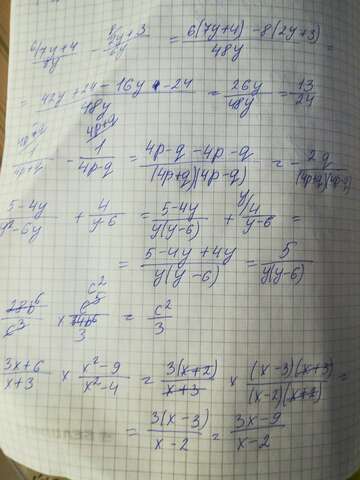 (7y+4)/8y - (2y+3)/6y = (6(7y+4) - 8(2y+3))/48y =
= (42y+24-16y-24)/48y = 26y/48y = 13/24
1/(4p+q) - 1/(4p-q) = (4p-q-4p-q)/((4p+q)(4p-q)) = -2q/((4p+q)(4p-q))
(5-4y)/(y²-6y) + 4/(y-6) = (5-4y)/(y(y-6)) + 4/(y-6) =
= (5-4y+4y)/(y(y-6)) = 5/(y(y-6))
= c²/3
(3x+6)/(x+3) × (x²-9)/(x²-4) = 3(x+2)/(x+3) × (x-3)(x+3)/((x-2)(x+2)) =
= 3(x-3)/(x-2) = (3x-9)/(x-2)